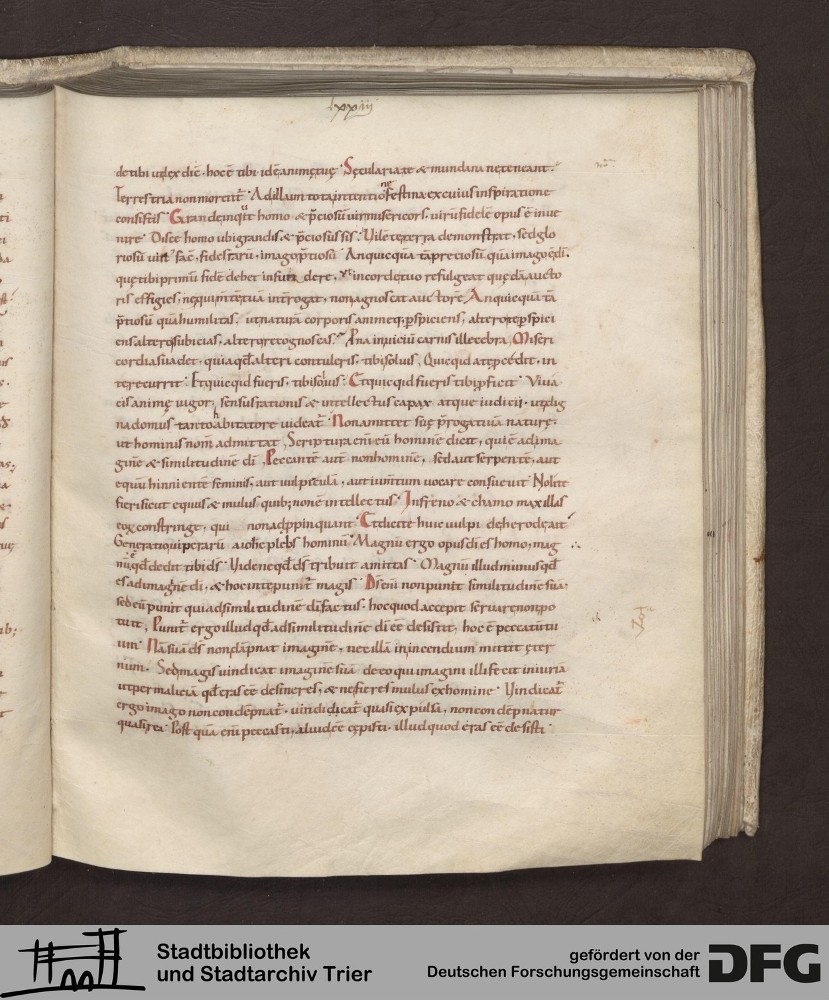 lxxiij
de tibi ut lex dic̄ · hoc ē tibi · id ē animę tuę · Sęcularia te & mundana ne teneant ·
Terrestria non morent᷑ · Ad illam tota intentio festina ex cuius inspiratione
ne
consistis · Grande inqͥt homo & p̄ciosū uir misericors · uirū fidelē opus ē inue
nire · Disce homo ubi grandis & p̄ciosus sis · Vilē te terra demonstrat · sed glo
riosū uirt᷑ fac̄ · fides rarū · imago p̄tiosū · An quicquā tā pretiosū quā imago ē dī ·
quę tibi primū fidē debet infun dere · ut in corde tuo refulgeat quędā aucto
ris effigies · ne qui mētē tuā introgat · non agnoscat auctorē · An quicquā tā
p̄tiosū quā humilitas · ut naturā corporis animęq; p̄spiciens · altero te p̄spici
ens · altero subicias · altero recognoscas · Miseri
cordia sua det · quia qd̄ alteri contuleris · tibi soluis · Quicqid at p̄cedit · in
te recurrit · Et quicqid fueris · tibi · Et quicqid fueris tibi p̄ficit · Viua
cis animę uigor · sensus rationis & intellectus capax · atque iudicii · ut dig
na domus tanto abitatore uideat᷑ · Non amittet suę p̄rogatiuā naturę ·
h
ut hominis nom̄ admittat · Scriptura enī eū hominē dicit · qui ē ad ima
ginē & similitudinē dī · Peccantē autē non hominē · sed aut serpentē · aut
equū hinnientē feminis · aut uulpiculā · aut iumtum uocare consueuit · Nolite
fieri sicut equus & mulus quib; non ē intellectus · In freno & chamo maxillas
eoꝝ constringe · qui non adp̄pinquant · Et dicite huic uulpi de herode ait
Generatio uiperarū a iohē plebs hominū · Magnū ergo opus dī es homo · mag
nū qd̄ dedit tibi ds̄ · Vide ne qd̄ ds̄ tribuit amittas · Magnū illud munus qd̄
es ad imaginē dī · & hoc in te punit᷑ magis · Ds̄ enī non punit similitudinē suā ·
sed eū punit qui ad similitudinē dī factus · hoc quod accepit seruare non po
tuit · Punit᷑ ergo illud qd̄ ad similitudinē dī ēē desistit · hoc ē peccatū tu
um · Nā suā ds̄ non dāpnat imaginē · nec illā in incendium mittit ęter
num · Sed magis uindicat imaginē suā de eo qui imagini illi fecit iniuriā
ut per maliciā qd̄ eras ēē desineres · & ne fieres mulus ex homine · Vindicat᷑
ergo imago non condēpnat᷑ · uindidicat᷑ quasi expulsa · non condēpnatur
quasi rea · Post quā enī peccasti · aliud ēē cępisti · illud quod eras ēē desisti ·
Stadtbibliothek
und Stadtarchiv Trier
gefördert von der
Deutschen Forschungsgemeinschaft
DFG